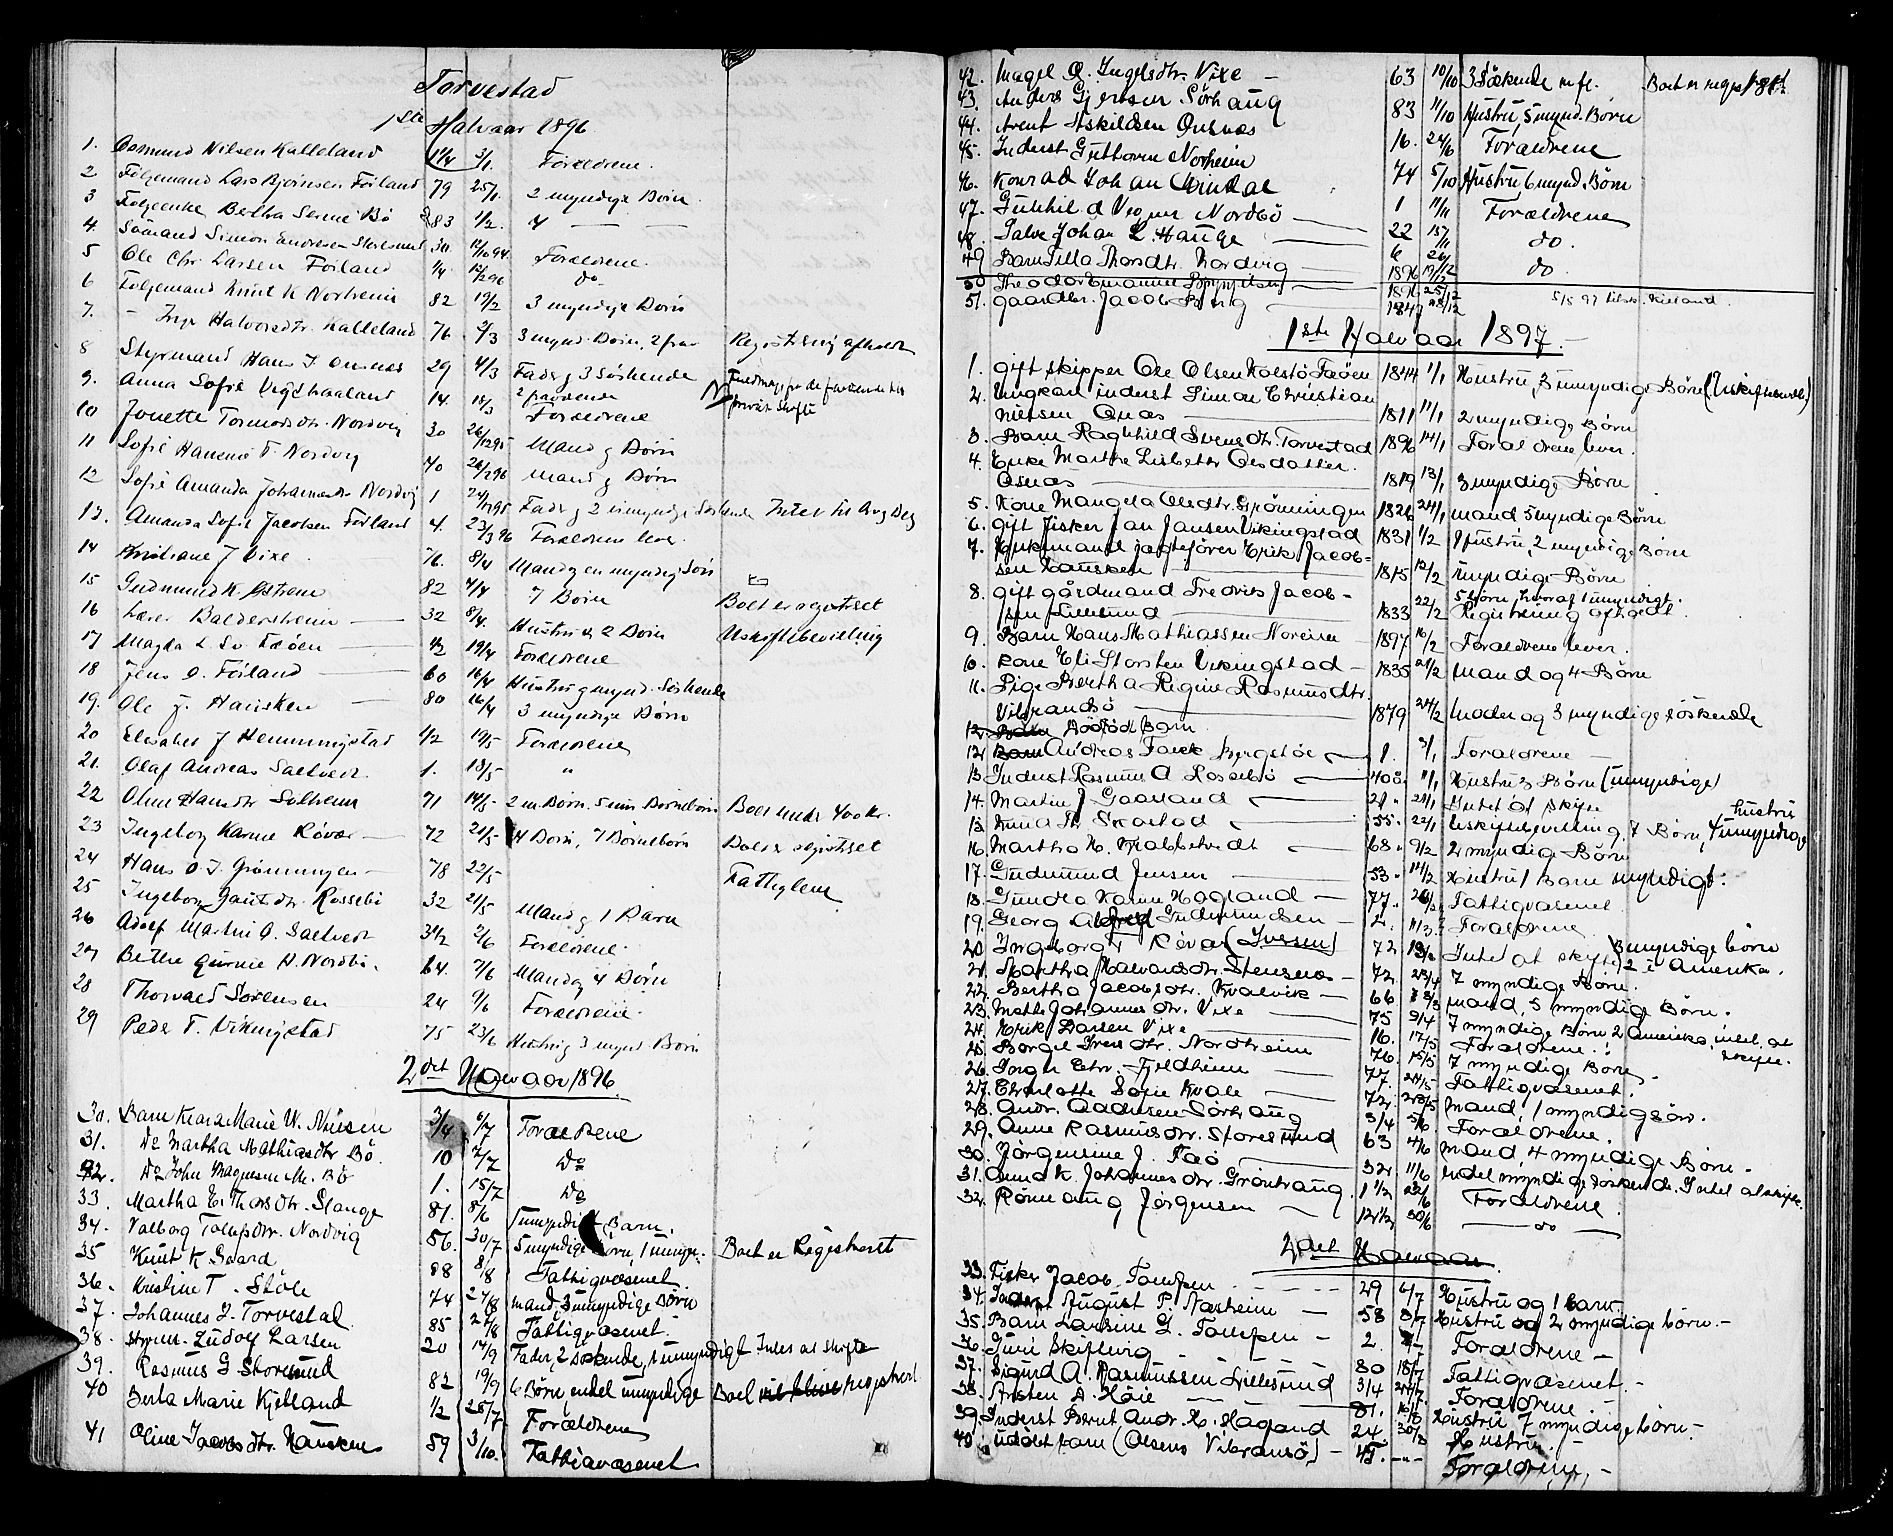 Torvestad
1ste Halvaar 1896
1. Osmund Nilsen Kalleland 1 1/4 3/1. Forældrene.
2. Følgemand Lars Bjørnsen Föiland 79 25/1 2 myndige Børn
3 Følgeenke Bertha Serine Bö 83 1/2. 4 — —
4. Sömand Simon Endresen Storesund 30. 12/10 94 Forældrene.
5 Ole Chr. Larsen Föiland 1/4 12/2 96 do
6 Følgemand Knut K Norheim 82 19/2 3 myndige Børn
7. — Inge Halvorsdtr. Kalleland 76 2/3 3 mynd. Børn, 2 fra Registrering afholdt
8 Styrmand Hans J. Onsnes 29 4/3 Fader & 3 Söskende
9. Anna Sofie Vigdhaaland 14. 18/3 Forældrene
10 Jonette Tormodsdtr. Nordvig 30 26/12 95 Mand & Børn
11 Sofie Hansine T. Nordvig 40 26/2 96 Mand & Børn
12 Sofie Amanda Johannesdtr Nordvig 1 24/12 95 Fader & 2 umyndige Söskende Intet til Arv Deg
13. Amanda Sofie Jacobsen Föiland 4. 23/3 96 Forældrene lever.
14 Kristiane J Vixe 76. 8/4 Mand og en myndig Sön
15 Gudmund K. Østrem 82 4/4 7 Børn Boet er registreret
16 Lærer Baldersheim — 32 8/4. Hustru & 2 Børn Uskiftebevilling
17 Magda L Sv Feöen — 1/2 19/4 Forældrene
18 Jens O. Föiland — 60 16/4 Hustru & mynd. Söskende
19. Ole J. Hausken — 80 16/4 3 myndige Børn
20 Elisabet J Hemmingstad 1/2 19/5 Forældrene
21. Olaf Andreas Saltvedt 1. 18/5 "
22 Oline Hansdtr Solheim 71 14/5 2 m. Børn. 5 um Børnebørn Boet under 400 kr.
23 Ingeborg Karine Røvær — 72 21/5 4 Børn, 7 Børnebørn Boet er registreret
24 Hans O. J. Grönningen — 78 22/5 Fattiglem
25 Ingeborg Gautsdtr. Rossebö 32 21/5 Mand & 1 Barn
26 Adolf Martin O. Saltvedt 3 1/2 2/6 Forældrene.
27 Bertha Gurine H. Nordbö. 64. 7/6 Mand og 4 Børn
28 Thorvald Sörensen 24 9/6 Forældrene.
29 Peder T. Vikingstad 75 23/6 Hustru & 3 mynd Børn
2det Halvaar 1896
30. Barn Klara Marie W. Nilsen 3/4 6/7 Forældrene
31. Do Martha Mathiasdtr Bö. 10 7/7 Do
32. Do John Magnesen M. Bö 1. 15/7 Do
33. Martha E. Thorsdtr. Stange 81. 8/6 5 myndige Barn.
34. Valborg Tollefsdtr. Nordvig 56. 30/7 5 myndige Børn 1 umyn. Boet er Registreret
35 Knut K Gaard 88 8/8 Fattigvæsenet.
36. Kristine T. Støle 74 27/8 mand, 3 umyndige Børn
37. Johannes J. Torvestad. 85 27/8 Fattigvæsenet.
38. Styrm. Ludolf Larsen 20 14/9 Fader, 2 søskende, 1 umyndigt Intet at skifte
39. Rasmus G Storesund 82 19/9 6 Børn, endel umyndige Boet vil blive registreret
40 Berta Marie Kjelland 1/2 25/7 Forældrene
41 Oline Jacobsdtr. Hausken 59 3/10. Fattigvæsenet
42. Magel O. Ingelsdtr. Vixe — 63 10/10 3 Söskende m fl. Boet er registreret
43. Anders Gjertsen Sörhaug 83 11/10 Hustru, 5 mynd. Børn
44. Arent Askildsen Onsnæs 16. 24/6 Forældrene
45. Inderst Guthorm Norheim 74 5/10 Hustru 6 mynd. Børn
46. Konrad Johan Mindal 1 11/11 Forældrene
47. Gunhild Vegner Nordbö — 22 13/11 do.
48. Salve Johan L. Hauge — 6 24/11 do
49 Barn Silla Thorsdtr. Nordvig — 1896 17/12
50 Theodor Emanuel — 1896 25/12
51. gaardbr. Jacob Berg — 1849 28/12
1ste Halvaar 1897.
1. gift skipper Ole Olsen Kolstö Feöen 1844 1/1 Hustru, 3 umyndige Børn (Uskiftebevill)
2. Ungkar inderst Simon Christian
Nielsen Onæs — 1811 11/1 2 myndige Børn
3. Barn Ragnhild Svensdtr. Torvestad 1896 14/1 Forældrene lever.
4. Enke Marthe Lisbeth Olsdatter
Osnæs — 1819 13/1 3 myndige Børn
5. Kone Mangela Olsdtr. Grönningen 1826 24/1 mand 5 myndige Børn
6. gift fisker Jan Jansen Vikingstad 1831 1/2 Hustru, 2 myndige Børn
7. Enkemand jagtefører Erik Jacob-
sen Hausken — 1815 12/2 myndige Børn
8. gift gårdmand Fredrik Jacob- 5 børn hvoraf 1 umyndigt.
sen Lillesund — 1833 22/2 Registrering afholdt.
9. Barn Hans Mathiassen Noreim — 1897 16/2 Forældrene lever.
10. Kone Eli Storsten Vikingstad — 1835 21/2 Mand og 4 Børn
11. Pige Bertha Regine Rasmusdtr.
Vibrandsö — 1879 24/2 Moder og 3 myndige söskende
12. Barn Dödfödt Barn
12 Barn Andreas Falck Bergstøl — 1. 3/1 Forældrene —
13. Inderst Rasmus A Rossebö — 40 8. 11/1 Hustru 3 Børn (umyndige)
14. Martin J Gaasland — 21 " 21/1 Intet at skifte
15. Knud Th. Skarstad — 55. 22/1 Uskiftebevilling, 7 Børn, 4 umyndige hustru
16. Martha H. Mabbetvedt — 68. 9/2 2 myndige Børn
17. Gudmund Jensen — 53. 11/2 Hustru 1 Barn myndigt.
18. Gundla Karine Hagland — 77. 26/2 Fattigvæsenet.
19. Georg Alfred Gudmundsen — 2. 11/3 Forældrene.
20 Ingeborg T Røvær (Iversen) 72 13/3 Intet at skifte 3 myndige børn 2 i Amerika.
21. Martha Halvardsdtr. Stensnæs — 72. 23/4 7 myndige Børn.
22. Bertha Jacobsdtr. Kvalvik — 66 28/3 mand, 5 myndige Børn.
23. Mette Johannesdtr. Vixe — 75 9/4 7 myndige Børn 2 Amerika, intet at skifte.
24. Erik Larsen Vixe — 16. 17/5 Forældrene.
25. Borgel Iversdtr. Nordheim 76. 15/5 7 myndige Børn —
26. Inger Chr. Fjeldheim — 77. 24/5 Fattigvæsenet.
27. Charlotte Sofie Kvale — 72. 28/5 Mand, 1 myndig sön.
28. Andr. Aadnesen Sörhaug 3/4 5/6 Forældrene.
29. Anne Rasmusdtr. Storesund 63 4/6 mand, 4 myndige Børn —
30. Jörgensine J. Feö 32 11/6 endel myndige söskende. Intet at skifte
31. Anna K. Johannesdtr. Gröntraug. 1 1/2 22/6 Forældrene.
32. Rönnaug Jørgensen — 12 1/2 30/6 — do —
2det Halvaar
33. Fisker Jacob Tollefsen — 29 6/7 Hustru og 1 barn.
34. Inderst August P. Næsheim — 58 8/7 Hustru og 2 myndige børn. —
35. Barn Larsine L. Tollefsen — 2. Forældrene —
36. Guri Skiftung — 80 18/7 Fattigvæsenet. —
37. Sigurd A. Rasmussen Lillesund 3/4 24/7 Forældrene. —
38. Arsten D. Høie — 81. 16/8 Hustru 7 myndige børn. —
39. Inderst Bernt Andr. K. Hagland 24 30/8 Hustru. —
40. udöbt barn (Olsens Vibransö) — 45. — " — Forældrene. —